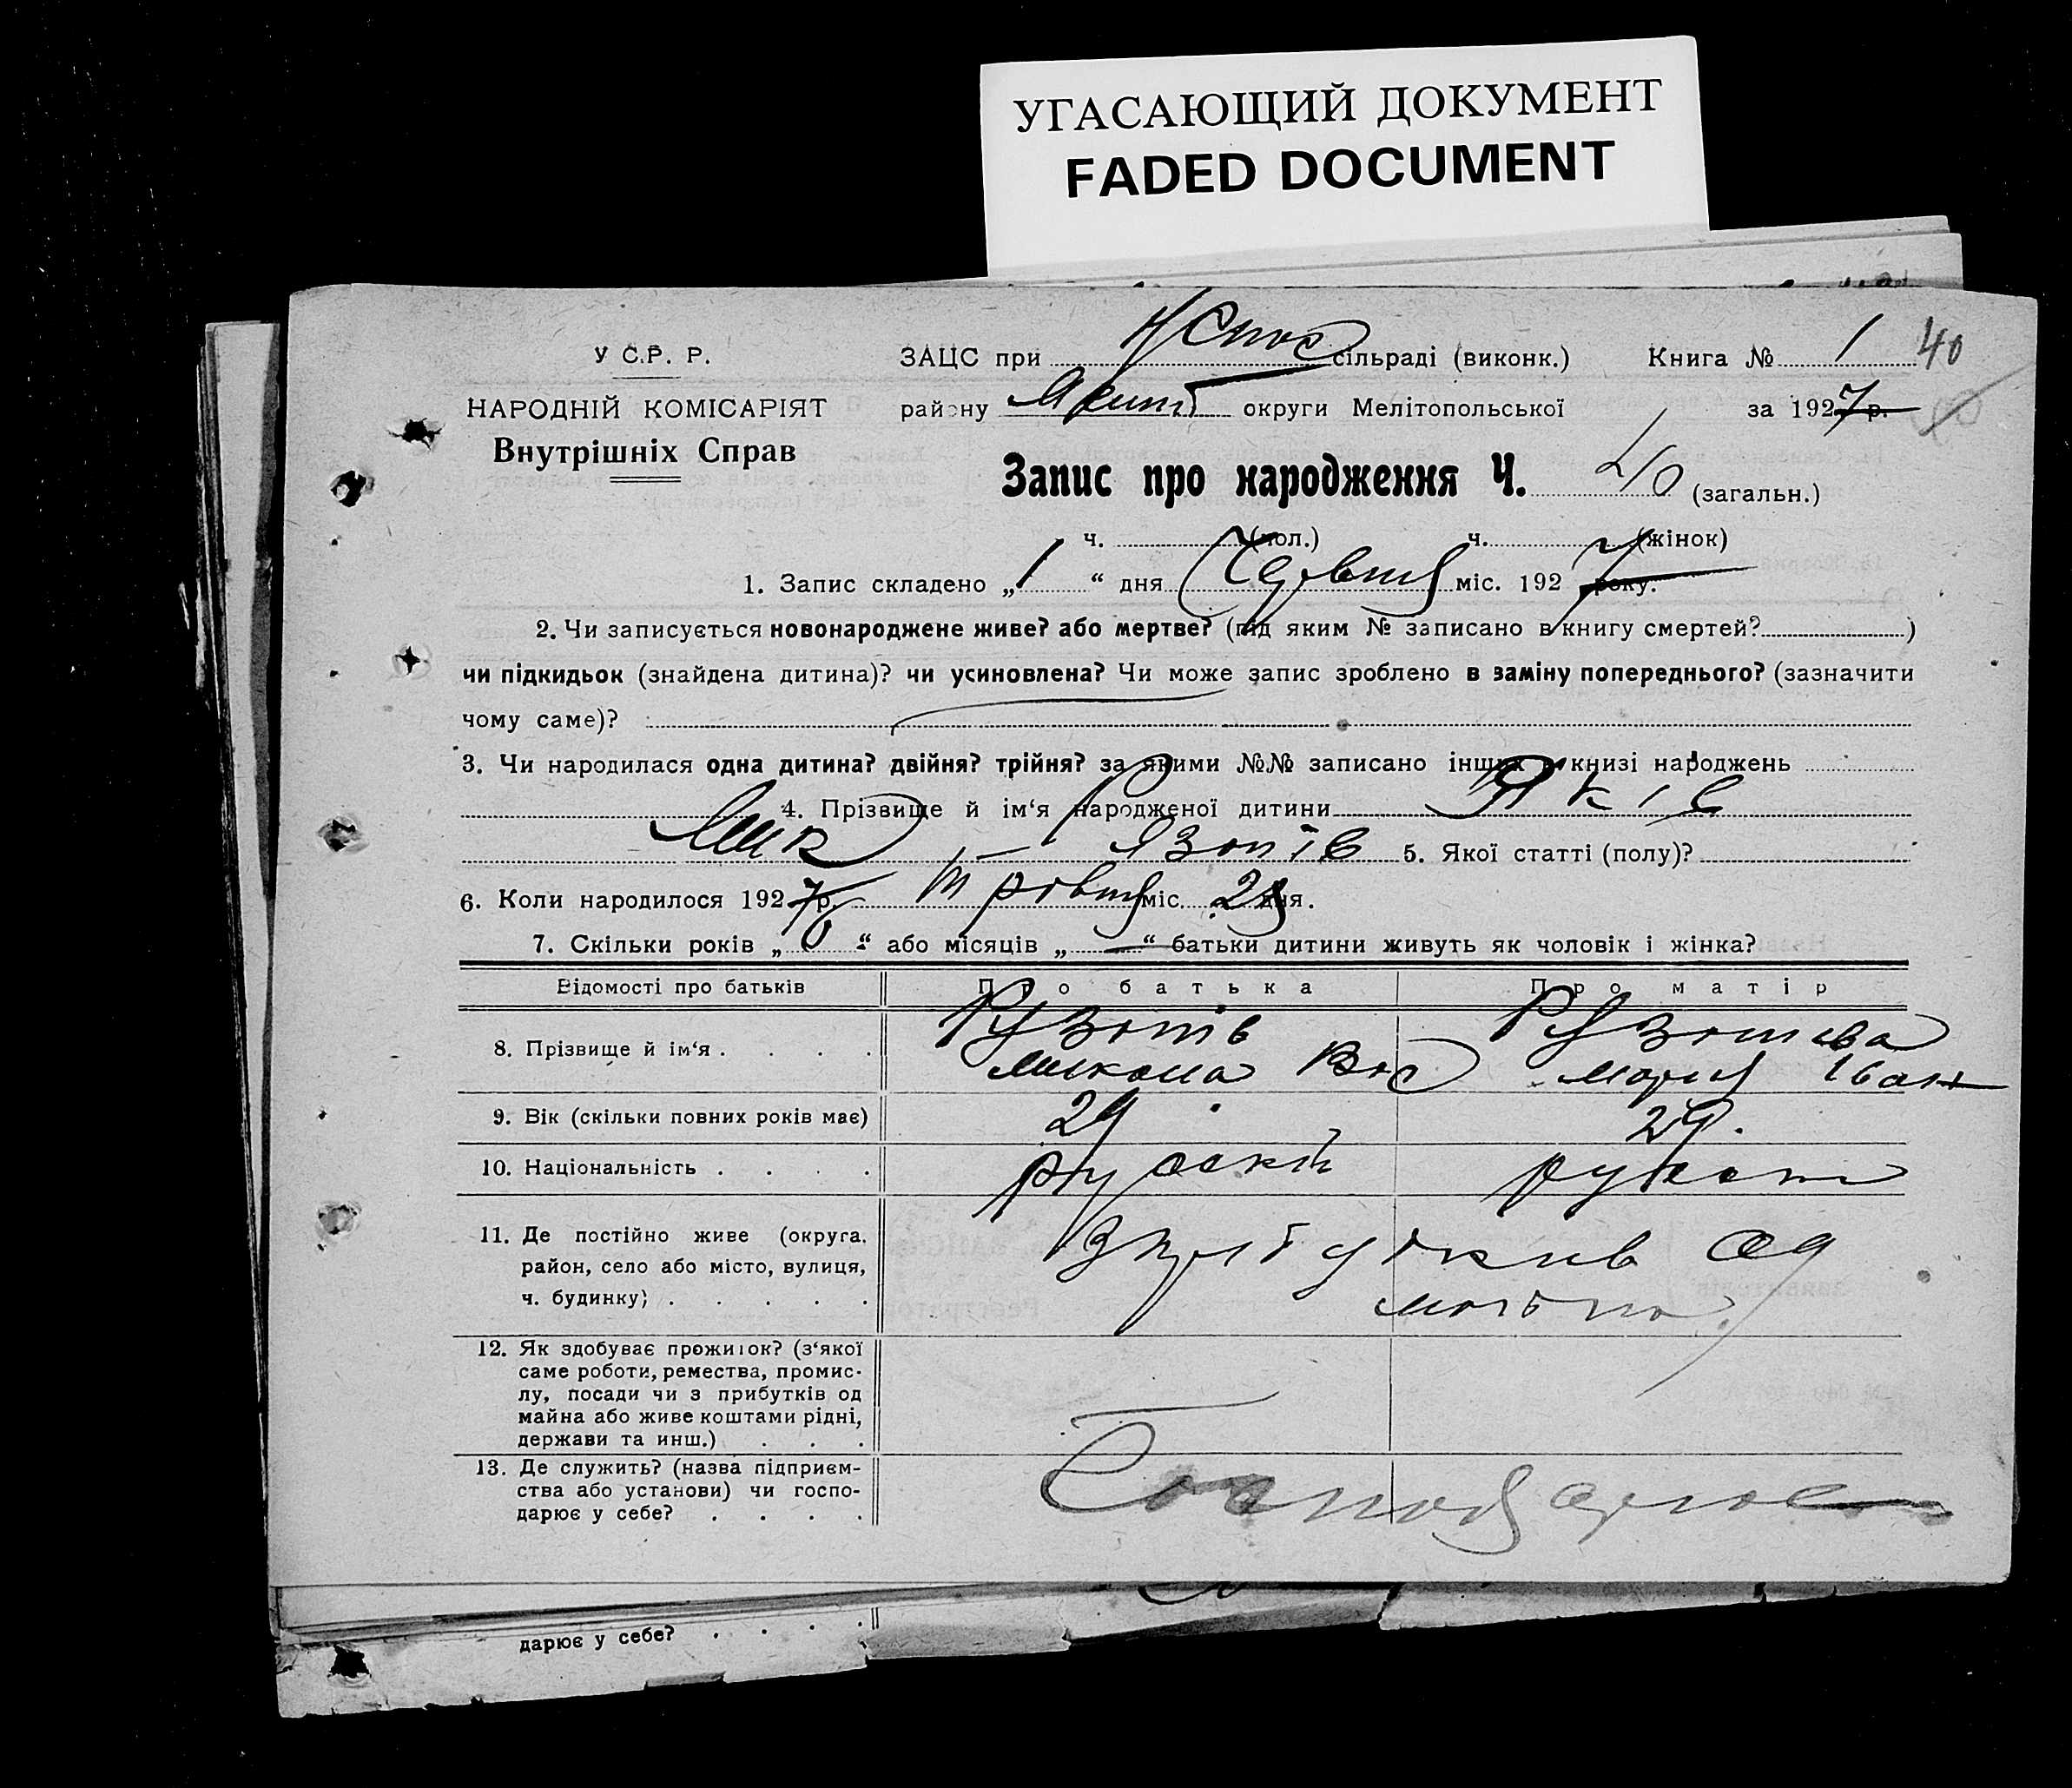 УГАСАЮЩИЙ ДОКУМЕНТ
FADED DOCUMENT
У С.Р. Р.
НАРОДНІЙ КОМІСАРІЯТ
Внутрішніх Справ
ЗАЦС при сільраді (виконк.) Книга № 1 40
району округи Мелітопольської за 1927 р.
Запис про народження Ч. 40 (загальн.)
ч. (пол.) ч. (жінок)
1. Запис складено „1“ дня Червня міс. 1927 року.
2. Чи записується новонароджене живе? або мертве? (під яким № записано в книгу смертей? )
чи підкидьок (знайдена дитина)? чи усиновлена? Чи може запис зроблено в заміну попереднього? (зазначити
чому саме)?
3. Чи народилася одна дитина? двійня? трійня? за якими №№ записано інших в книзі народжень
4. Прізвище й ім‘я народженої дитини Яків
Мик 5. Якої статті (полу)?
6. Коли народилося 1927 р. Травня міс. 28 дня.
7. Скільки років „6“ або місяців „—“ батьки дитини живуть як чоловік і жінка?
Відомості про батьків Про батька Про матір
8. Прізвище й ім‘я . . . .
Микола Вас Мария Іван
9. Вік (скільки повних років має) 29 29.
10. Національність . . . . руський
11. Де постійно живе (округа,
район, село або місто, вулиця,
ч. будинку) . . . . .
12. Як здобуває прожиток? (з‘якої
саме роботи, ремества, промис-
лу, посади чи з прибутків од
майна або живе коштами рідні,
держави та инш.) . . .
13. Де служить? (назва підприєм-
ства або установи) чи госпо-
дарює у себе? . . . .
Господарює
дарює у себе? . . . .